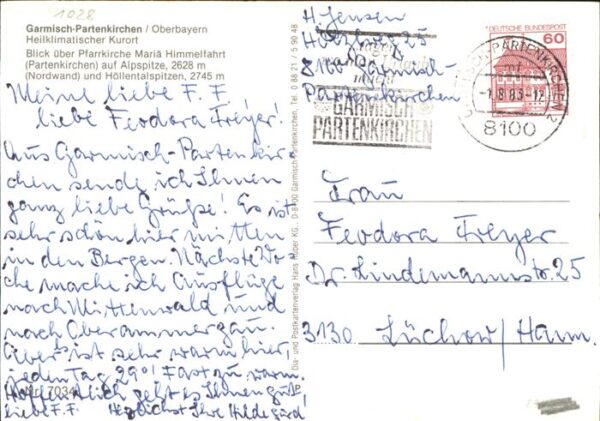 1028
Garmisch-Partenkirchen / Oberbayern
Heilklimatischer Kurort
Blick über Pfarrkirche Mariä Himmelfahrt
(Partenkirchen) auf Alpspitze, 2628 m
(Nordwand) und Höllentalspitzen, 2745 m
Meine liebe F. F
liebe Feodora Freyer!
Aus Garmisch-Partenkir-
chen sende ich Ihnen
ganz liebe Grüße! Es ist
sehr schön hier mitten
in den Bergen. Nächste Wo-
che mache ich Ausflüge
nach Mittenwald und
nach Oberammergau.
Aber ist sehr warm hier,
jeden Tag 29°! Fast zu warm.
Hoffentlich geht es Ihnen gut,
liebe F. F. Herzlichst Ihre Hildegard
7034
Dia- und Postkartenverlag Hans Huber KG, D-8100 Garmisch-Partenkirchen, Tel. 0 88 21
H. Jensen
25
8100 Garmisch-
Partenkirchen
GARMISCH
PARTENKIRCHEN
DEUTSCHE BUNDESPOST
60
GARMISCH-PARTENKIRCHEN 2
-1.8.83-12
8100
Frau
Feodora Freyer
Dr. Lindemannstr. 25
3130 Lüchow/Hann.